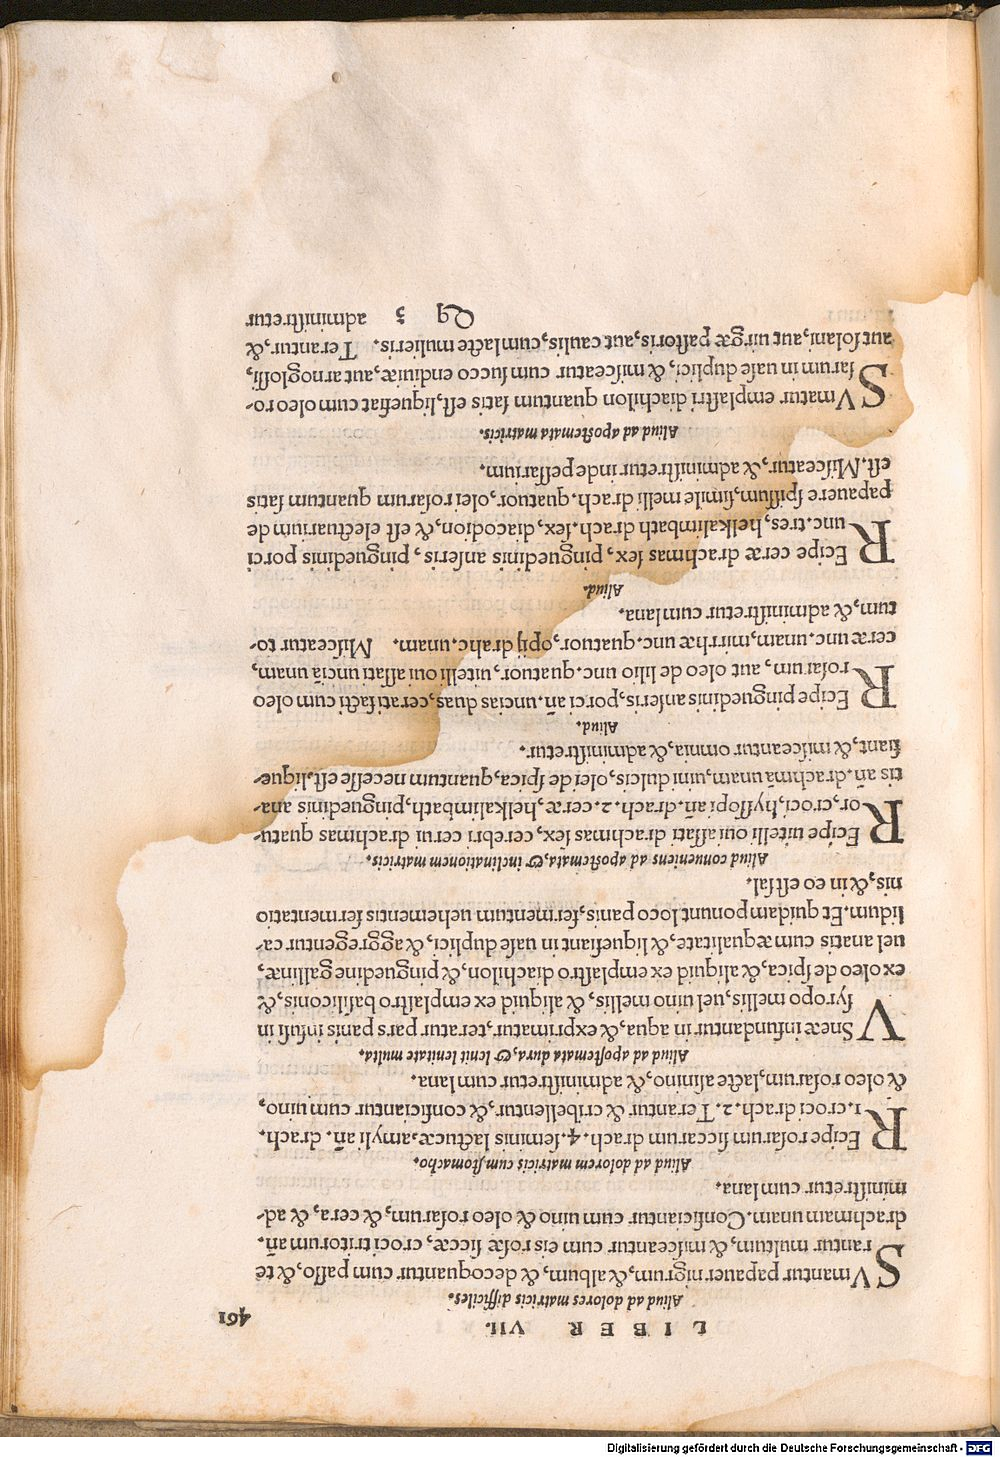 LIBER VII. 461
Aliud ad dolores matricis difficiles.
SVmantur papauer nigrum, & album, & decoquantur cum passo, & te
rantur multum, & misceantur cum eis rosæ siccæ, croci tritorum añ.
drachmam unam. Conficiantur cum uino & oleo rosarum, & cera, & ad-
ministretur cum lana.
Aliud ad dolorem matricis cum stomacho.
REcipe rosarum siccarum drach. 4. seminis lactucæ, amyli añ. drach.
1. croci drach. 2. Terantur & cribellentur, & conficiantur cum uino,
& oleo rosarum, lacte asinino, & administretur cum lana.
Aliud ad apostemata dura, & lenit lenitate multa.
VSneæ infundantur in aqua, & exprimatur, teratur pars panis infusi in
syropo mellis, uel uino mellis, & aliquid ex emplastro basiliconis, &
ex oleo de spica, & aliquid ex emplastro diachilon, & pinguedine gallinæ,
uel anatis cum æqualitate, & liquefiant in uase duplici, & aggregentur ca-
lidum. Et quidam ponunt loco panis, fermentum uehementis fermentatio
nis, & in eo est sal.
Aliud conueniens ad apostemata, & inclinationem matricis.
REcipe uitelli oui assati drachmas sex, cerebri cerui drachmas quatu-
or, croci, hyssopi añ. drach. 2. ceræ, helkalimbath, pinguedinis ana-
tis añ. drachmā unam, uini dulcis, olei de spica, quantum necesse est, lique-
fiant, & misceantur omnia, & administretur.
Aliud.
REcipe pinguedinis anseris, porci añ. uncias duas, cerati facti cum oleo
rosarum, aut oleo de lilio unc. quatuor, uitelli oui assati unciā unam,
ceræ unc. unam, mirrhæ unc. quatuor, opij drahc. unam. Misceatur to-
tum, & administretur cum lana.
Aliud.
REcipe ceræ drachmas sex, pinguedinis anseris, pinguedinis porci
unc. tres, helkalimbath drach. sex, diacodion, & est electuarium de
papauere spissum, simile melli drach. quatuor, olei rosarum quantum satis
est. Misceatur, & administretur inde pessarium.
Aliud ad apostemata matricis.
SVmatur emplastri diachilon quantum satis est, liquefiat cum oleo ro-
sarum in uase duplici, & misceatur cum succo endiuiæ, aut arnoglossi,
aut solani, aut uirgæ pastoris, aut caulis, cum lacte mulieris. Terantur, &
Qq 3 administretur
Digitalisierung gefördert durch die Deutsche Forschungsgemeinschaft - DFG